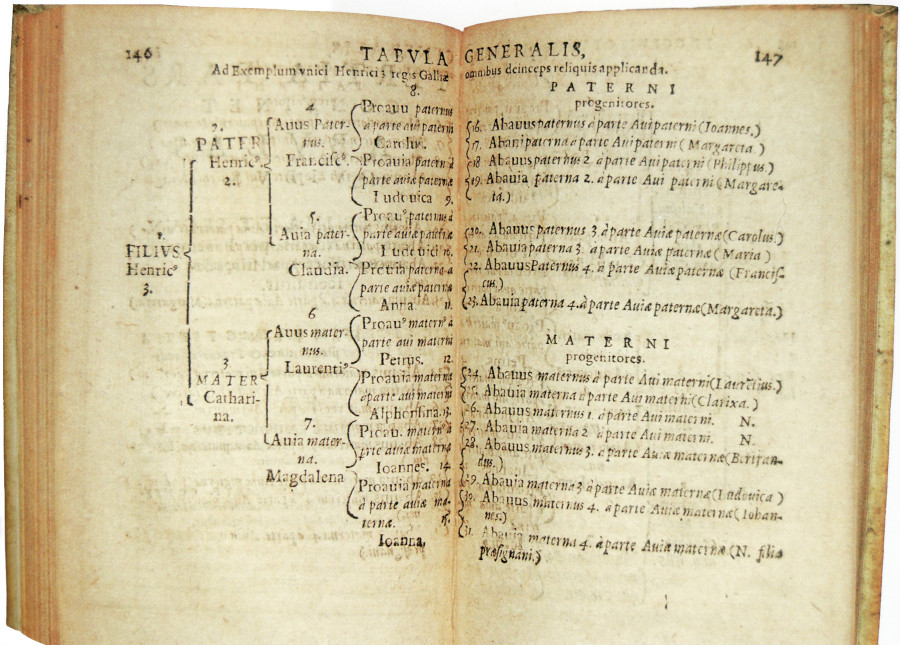 146
TABVLA
Ad Exemplum vnici Henrici 3 regis Galliæ
8.
1.
FILIVS
Henricꝰ
3.
2.
PATER
Henricꝰ.
2.
3
MATER
Cathari-
na.
4
Auus Pater-
nus.
Franciscꝰ
5.
Auia pater-
na.
Claudia.
6
Auus mater-
nus.
Laurentiꝰ
7.
Auia mater-
na.
Magdalena
Proauu paternus
à parte aui paterni
Carolus.
Proauia paterna
parte auiæ paternæ
Ludouica 9.
Proauꝰ paternus à
parte auiæ
Ludouici 10.
paterna à
parte aui paternæ
Anna 11.
Proauꝰ maternꝰ à
parte aui materni
Petrus. 12.
Proauia materna
à parte aui materni
Alphonsina. 13.
Proau. maternꝰ à
parte auiæ maternæ
Ioannes. 14
Proauia materna
à parte auiæ ma-
ternæ. 15.
Ioanna,
GENERALIS, 147
omnibus deinceps reliquis applicanda.
PATERNI
progenitores.
16. Abauus paternus à parte Aui paterni (Ioannes.)
17. Abaui paterna à parte Aui paterni (Margareta.)
18 Abauus paternus 2. à parte Aui paterni (Philippus.)
19. Abauia paterna 2. à parte Aui paterni (Margare-
ta.)
20. Abauus paternus 3 à parte Auiæ paternæ (Carolus.)
21. Abauia paterna 3. à parte Auiæ paternæ (Maria)
22. Abauus Paternus 4. à parte Auiæ paternæ (Francis-
cus.)
23. Abauia paterna 4. à parte Auiæ paternæ (Margareta.)
MATERNI
progenitores.
24. Abauus maternus à parte Aui materni (Lauretius.)
25. Abauia materna à parte Aui materni (Clarixa.)
26. Abauus maternus 1. à parte Aui materni. N.
27. Abauia materna 2 à parte Aui materni. N.
28. Abauus maternus 3. à parte Auiæ maternæ (Bertran-
dus.)
29. Abauia materna 3 à parte Auiæ maternæ (Ludouica)
30. Abauus maternus 4. à parte Auiæ maternæ (Iohan-
nes.)
31. Abauia materna 4. à parte Auiæ maternæ (N. filia
præsignani.)